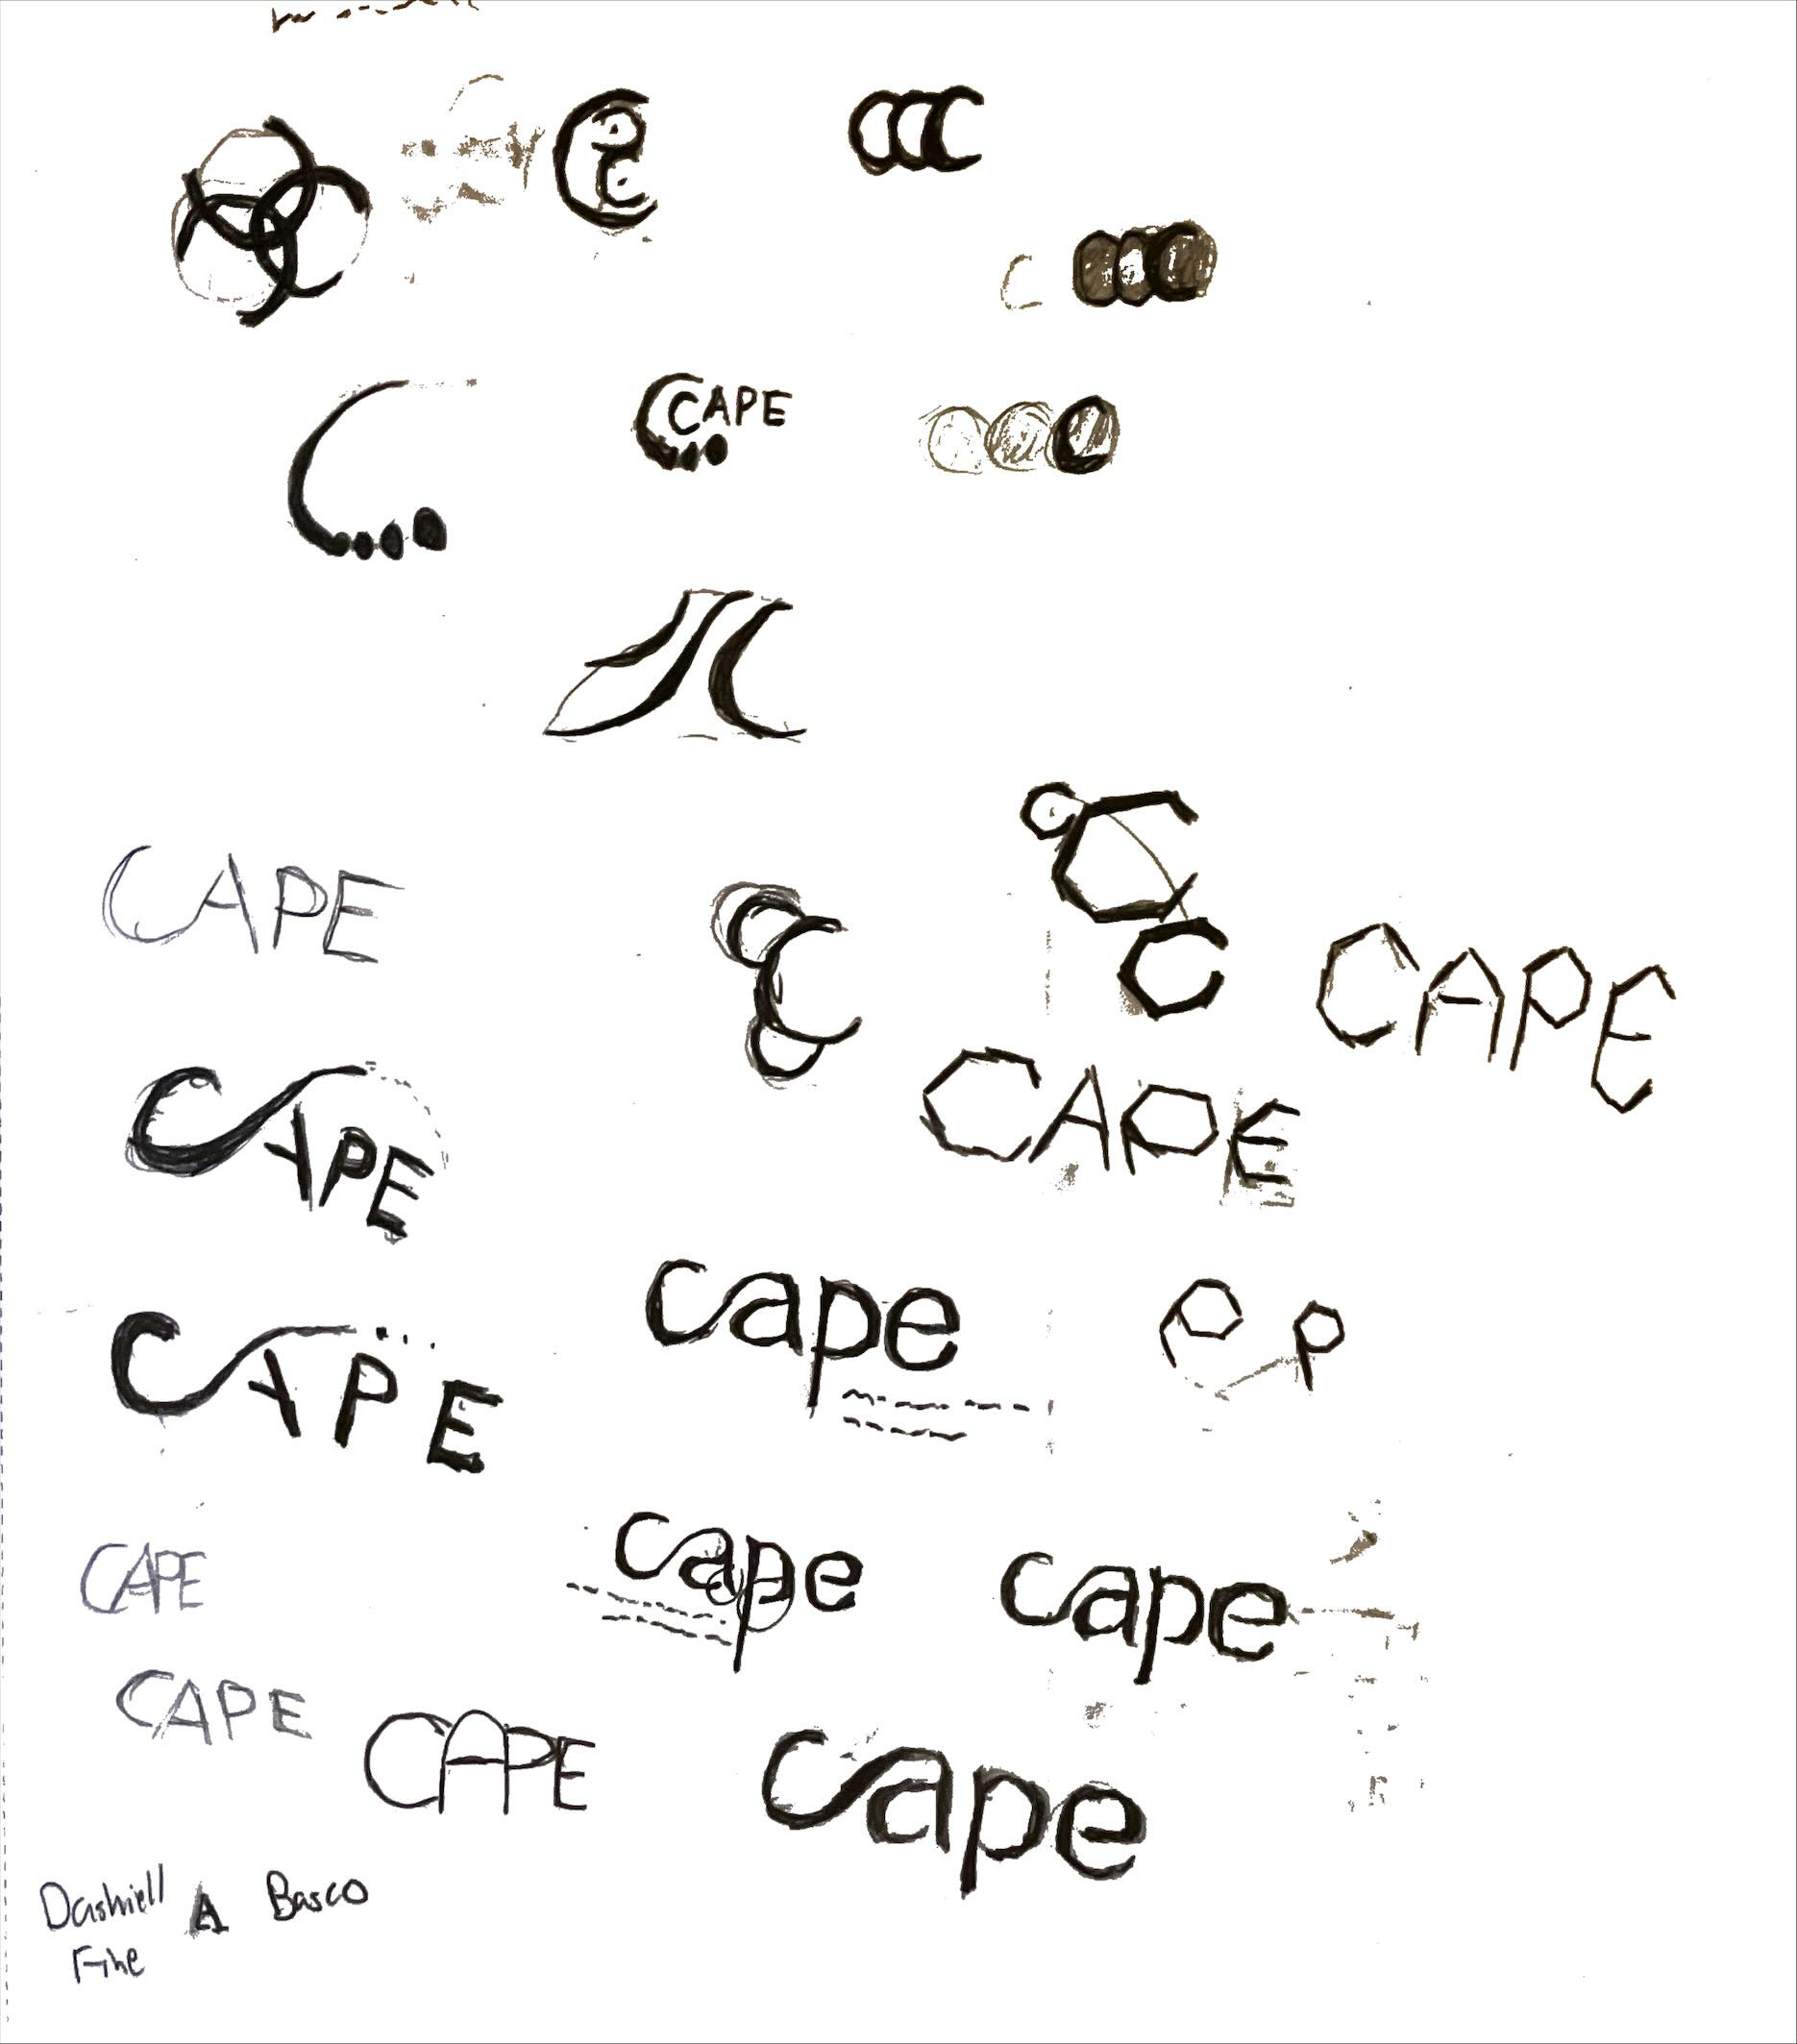 CCC
C
CAPE
C
CAPE
C
CAPE
CAPE
CAPE
cape
P P
CAPE
CAPE
cape
cape
CAPE
CAPE
cape
Dashiell A Basco
Fine